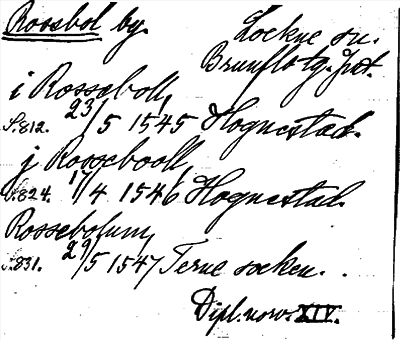 Rossbol by. Lockne sn.
Brunflo tg. Jtl.
i Rosseboll,
S. 812. 23/5 1545 Hognestad.
j Rossebooll,
S. 824. 17/4 1546 Hognestad.
Rossebolum,
S. 831. 29/5 1547 Terne socken.
Dipl. norv. XIV.